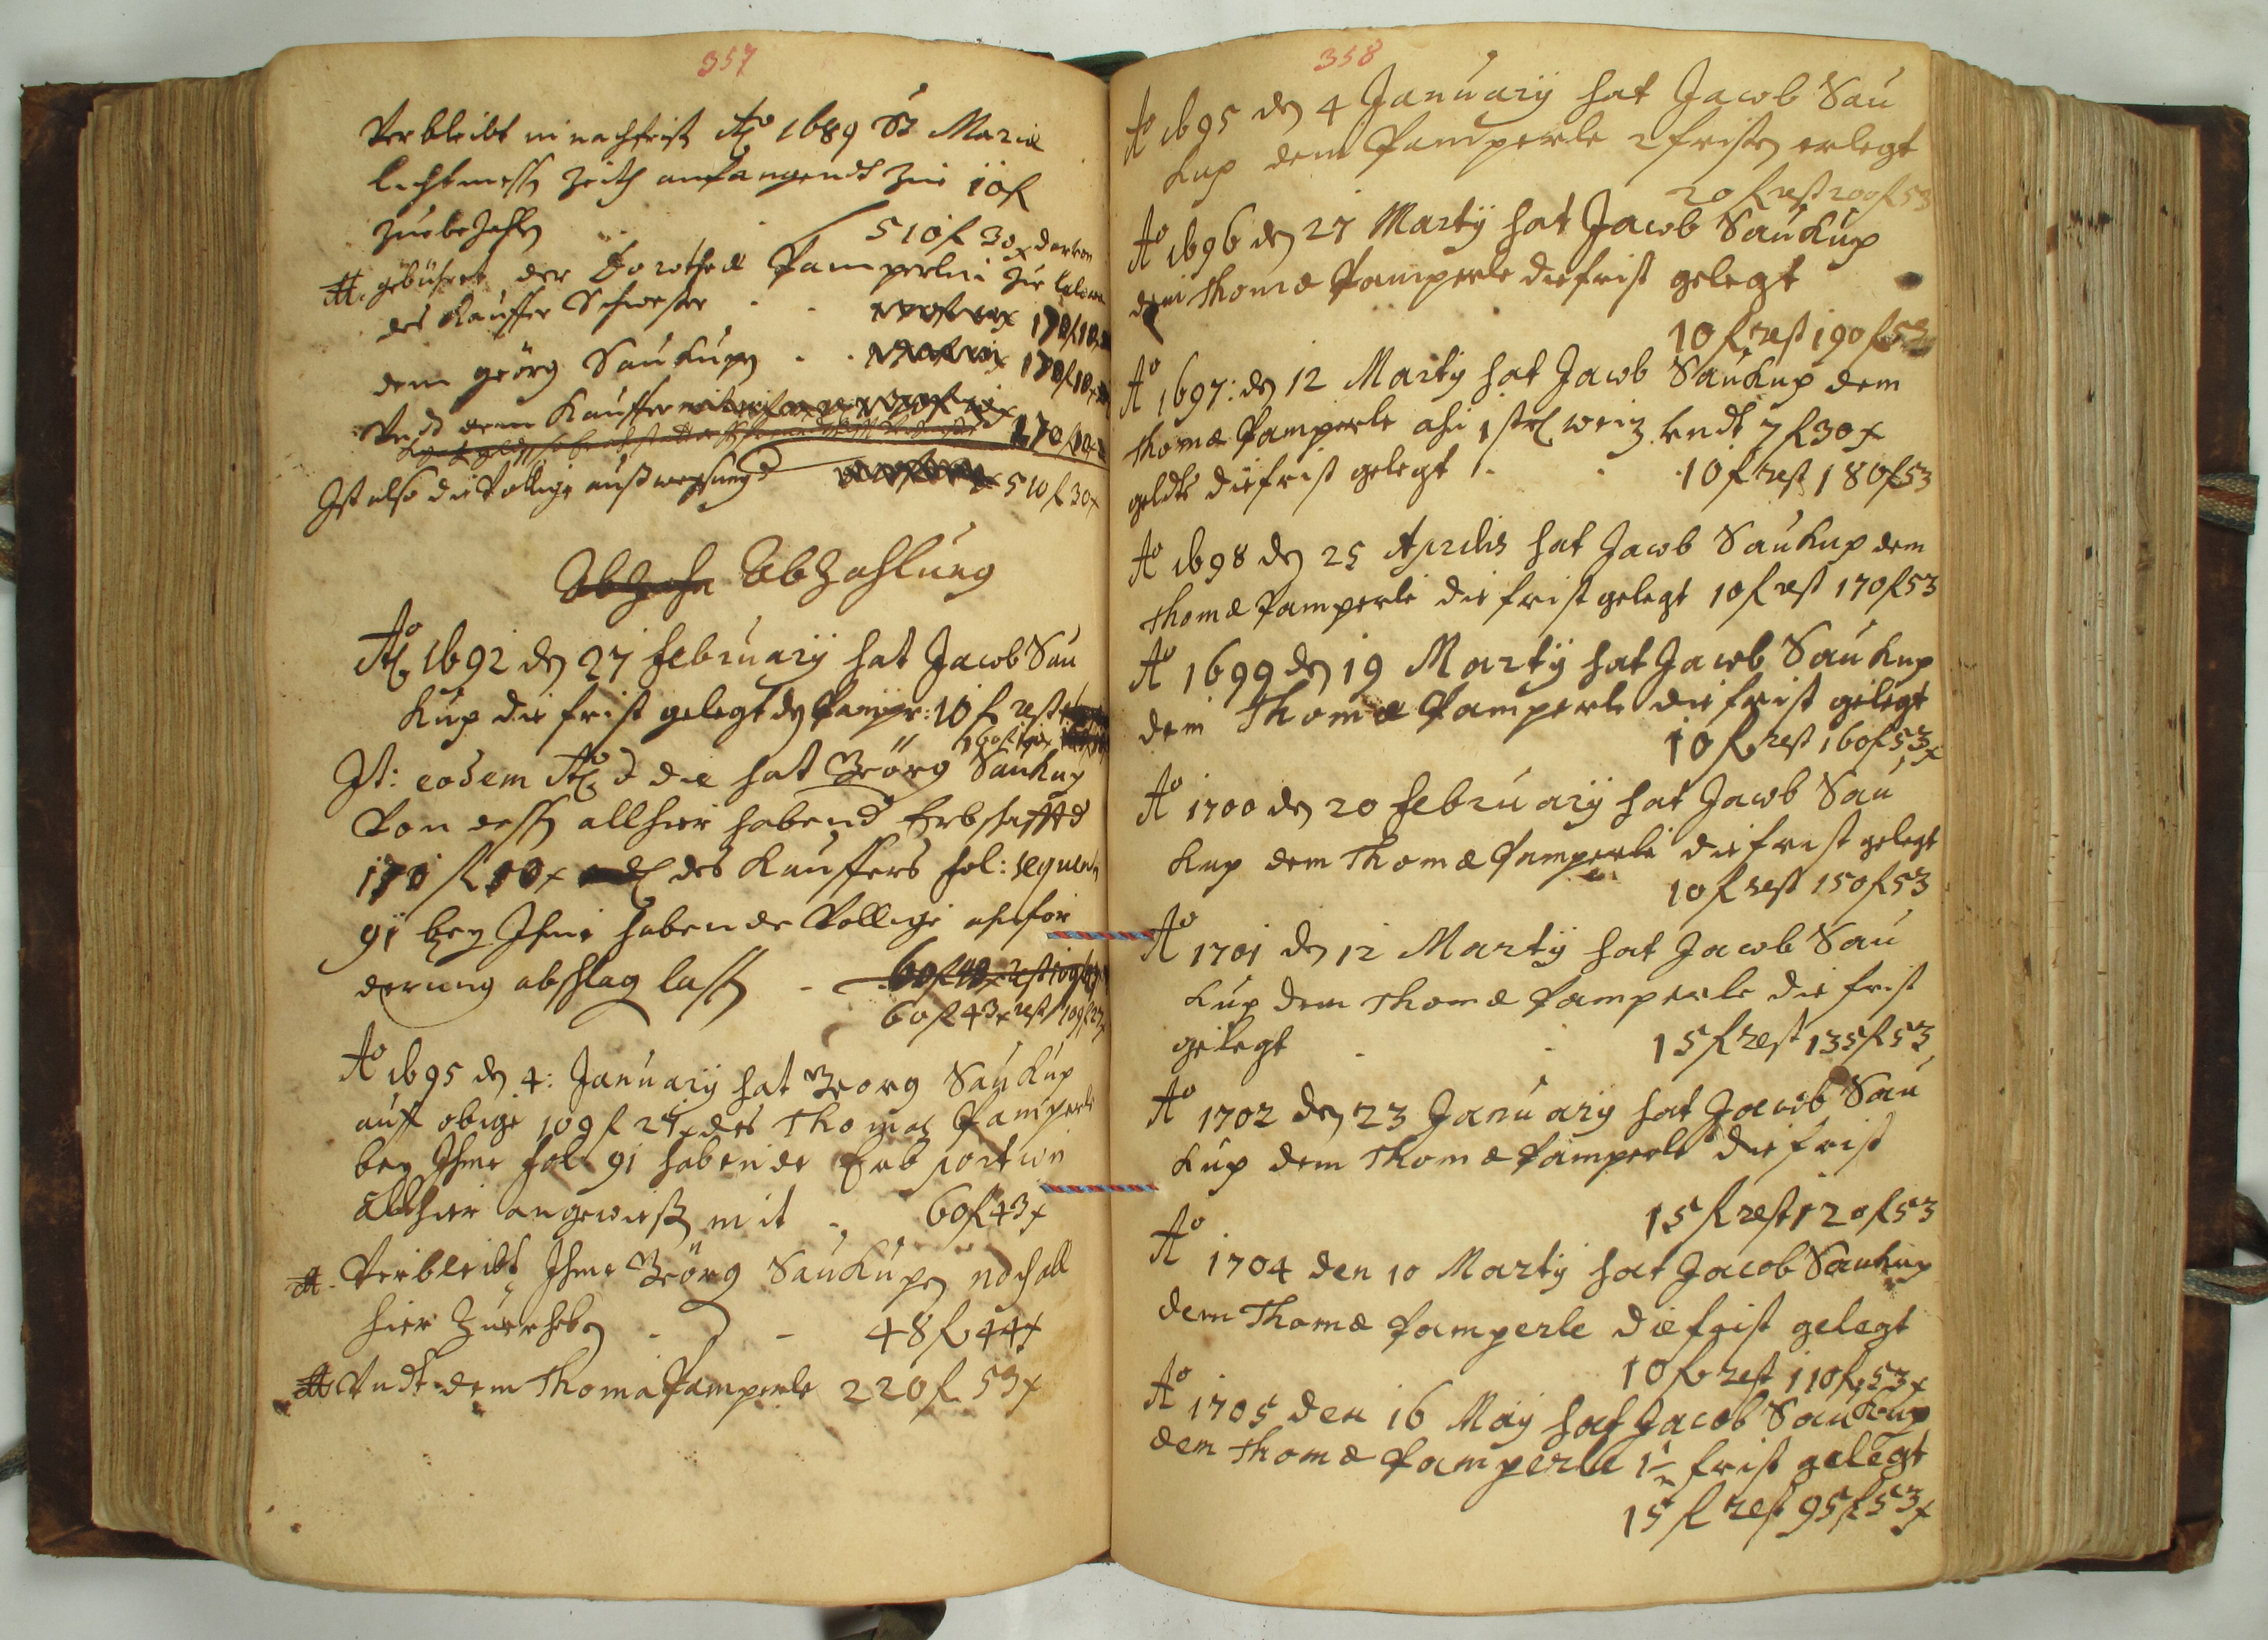 357
Verbleibt in nachfrist Ao 1689 St Maria
lichtmessen Zeith anfangendt Zue 10 f
Zue bezahlen 510 f 30 x darvon
gebühret der Dorothea Pamperlin Zue
des Kauffer Schwester . . 170 f 10 x
dem Geörg Saukupen . . 170 f 10 x
Undt dem Kauffer 170 f 10 x
Ist also die Völlige außweysung 510 f 30 x
Abzahl Abzahlung
Ao 1692 den 27 February hat Jacob Sau
Kup die frist gelegt den Pamper: 10 f rest
160 f 10 x
It: eodem Ao & die hat Geörg Saukup
Von dessen allhier habend Erbschafft
170 f 10 x des Kauffers fol:
91 bey Ihme habende Völlige anfor
derung abschlag lassen - 60 f 43 x rest 109 f 27
60 f 43 x rest 109 f 27 x
Ao 1695 den 4: January hat Georg Saukup
auff obige 109 f 27 x des Thomas Pamperle
bey Ihme fol: 91 habende Erb portion
allhier angewießen mit . 60 f 43 x
Verbleibt Ihme Geörg Saukupen noch all
hier Zuerheben . - 48 f 44 x
Undt dem Thoma Pamperle 220 f 53 x
358
Ao 1695 den 4 January hat Jacob Sau
kup dem Pamperle 2 fristen erlegt
20 f rest 200 f 53
Ao 1696 den 27 Marty hat Jacob Saukup
dem Thomæ Pamperle die frist gelegt
10 f rest 190 f 53
Ao 1697: den 12 Marty hat Jacob Saukup dem
Thomæ Pamperle 1 weiz Undt 7 f 30 x
geldts die frist gelegt . . 10 f rest 180 f 53
Ao 1698 den 25 Aprilis hat Jacob Saukup dem
Thomæ Pamperle die frist gelegt 10 f rest 170 f 53
Ao 1699 den 19 Marty hat Jacob Saukup
dem Thomæ Pamperle die frist gelegt
10 f rest 160 f 53 x
Ao 1700 den 20 February hat Jacob Sau
kup dem Thomæ Pamperle die frist gelegt
10 f rest 150 f 53
Ao 1701 den 12 Marty hat Jacob Sau
kup dem Thomæ Pamperle die frist
gelegt . . 15 f rest 135 f 53
Ao 1702 den 23 January hat Jacob Sau
kup dem Thomæ Pamperle die frist
15 f rest 120 f 53
Ao 1704 den 10 Marty hat Jacob Saukup
dem Thomæ Pamperle die frist gelegt
10 f rest 110 f 53 x
Ao 1705 den 16 May hat Jacob Saukup
dem Thomæ Pamperle 1½ frist gelegt
15 f rest 95 f 53 x